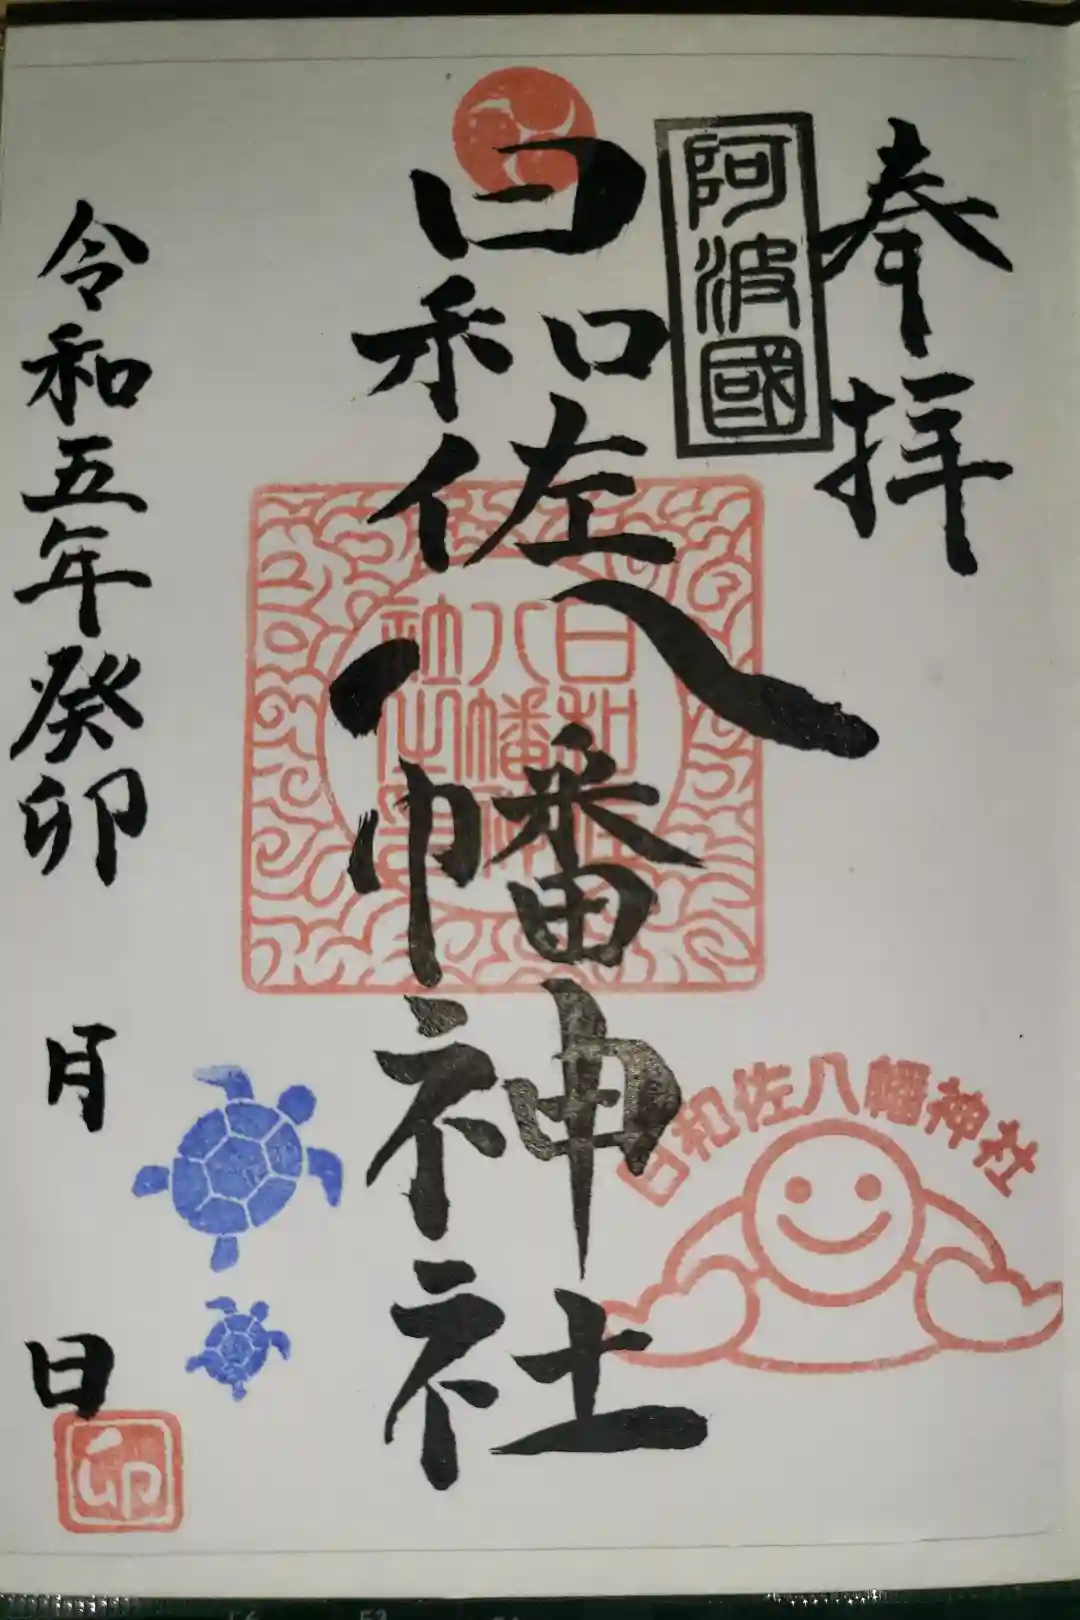 奉拝
阿波國
日和佐八幡神社
日和佐
八幡神
社
日和佐八幡神社
令和五年癸卯
月
日
卯